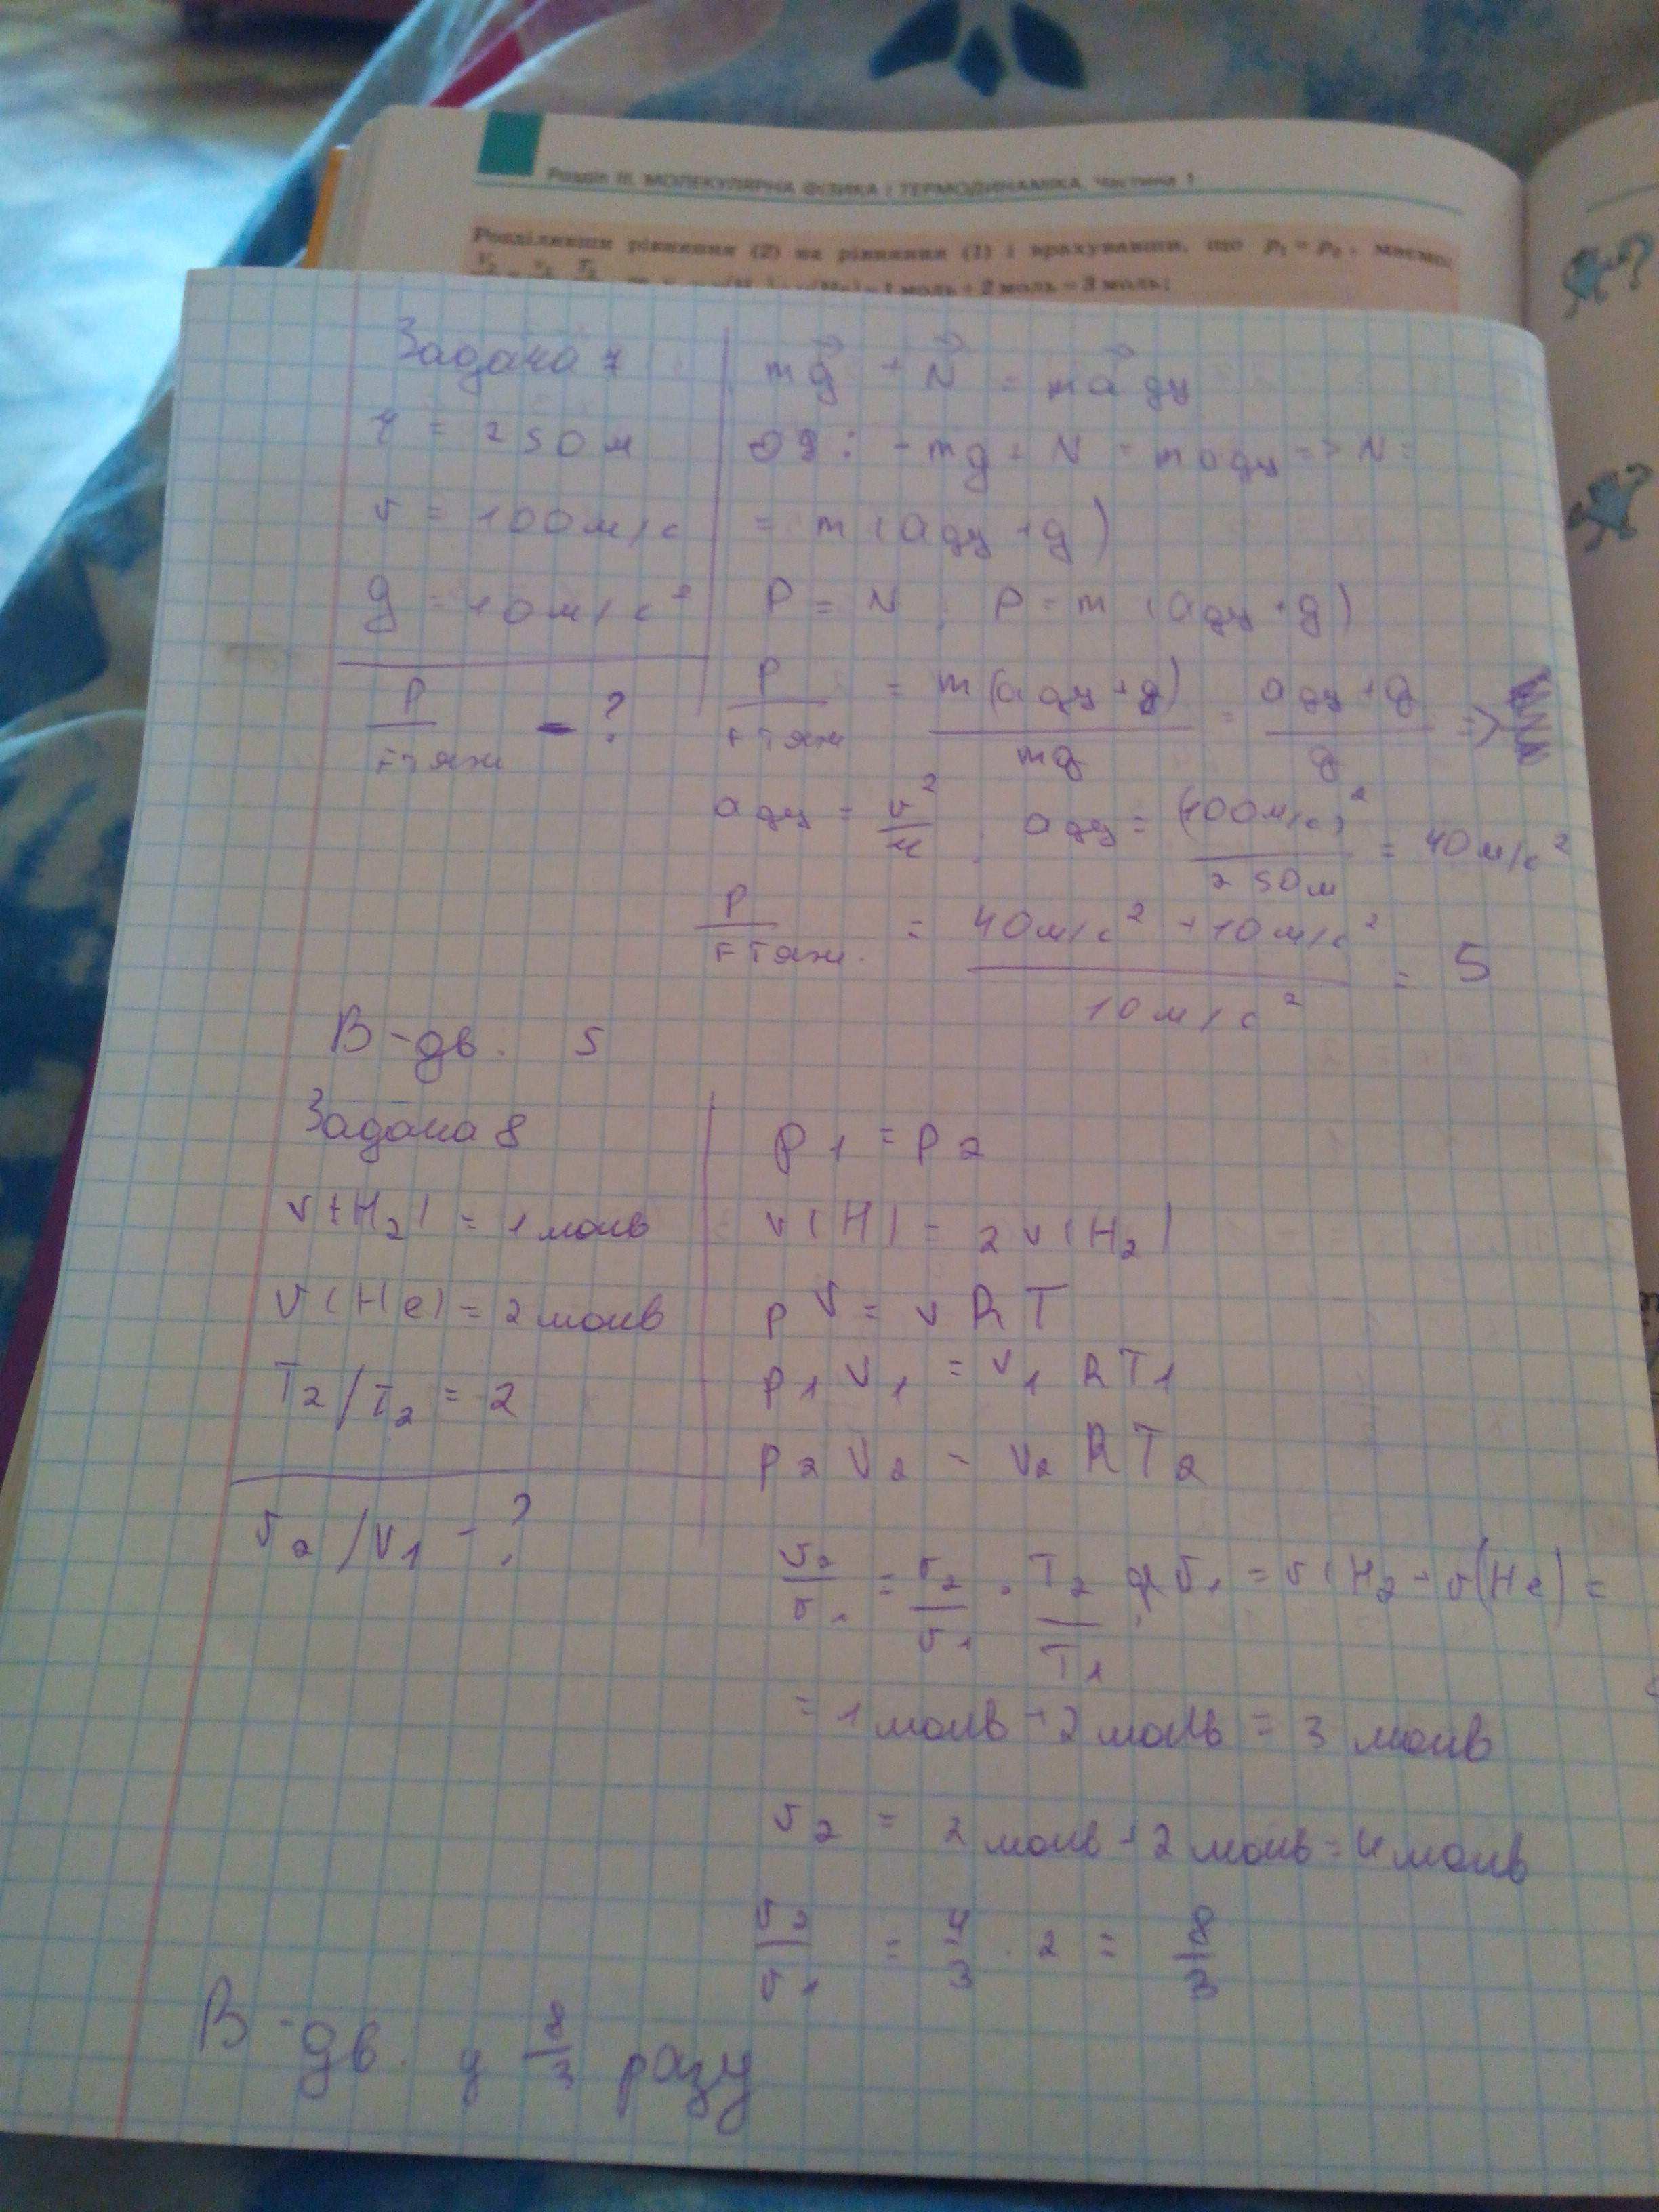 Розділ III. МОЛЕКУЛЯРНА ФІЗИКА І ТЕРМОДИНАМІКА. Частина 1
Розділивши рівняння (2) на рівняння (1) і врахувавши, що p₁ = p₂, маємо:
1 моль + 2 моль = 3 моль;
Задача 7
r = 250 м
v = 100 м/с
g = 10 м/с²
P/Fтяж - ?
mg⃗ + N⃗ = ma⃗дц
OY: -mg + N = maдц => N =
= m(aдц + g)
P = N; P = m(aдц + g)
P/Fтяж = m(aдц + g)/mg = aдц + g/g =>
aдц = v²/r; aдц = (100 м/с)²/250 м = 40 м/с²
P/Fтяж. = 40 м/с² + 10 м/с²/10 м/с² = 5
В-дь. 5
Задача 8
ν(H₂) = 1 моль
ν(He) = 2 моль
T₂/T₂ = 2
V₂/V₁ - ?
p₁ = p₂
ν(H) = 2ν(H₂)
pV = νRT
p₁V₁ = ν₁RT₁
p₂V₂ = ν₂RT₂
V₂/V₁ = ν₂/ν₁ · T₂/T₁; ν₁ = ν(H₂ + ν(He) =
= 1 моль + 2 моль = 3 моль
ν₂ = 2 моль + 2 моль = 4 моль
V₂/V₁ = 4/3 · 2 = 8/3
В-дь. у 8/3 разу